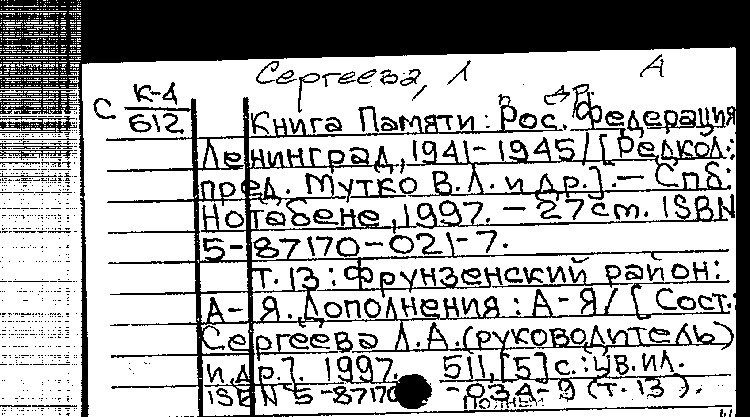 Сергеева, Л А
С К-4
612
Книга Памяти: Рос. Федерация
Ленинград, 1941-1945/[Редкол.:
пред. Мутко В.Л. и др.].— Спб:
Нотабене, 1997. — 27 cm. ISBN
5-87170-021-7.
Т.13: Фрунзенский район:
А-Я. Дополнения: А-Я/[Сост.:
Сергеева Л.А.(руководитель)
и др.]. 1997. 511,[5]с.: цв.ил.
ISBN 5-87170 -034-9 (Т.13).